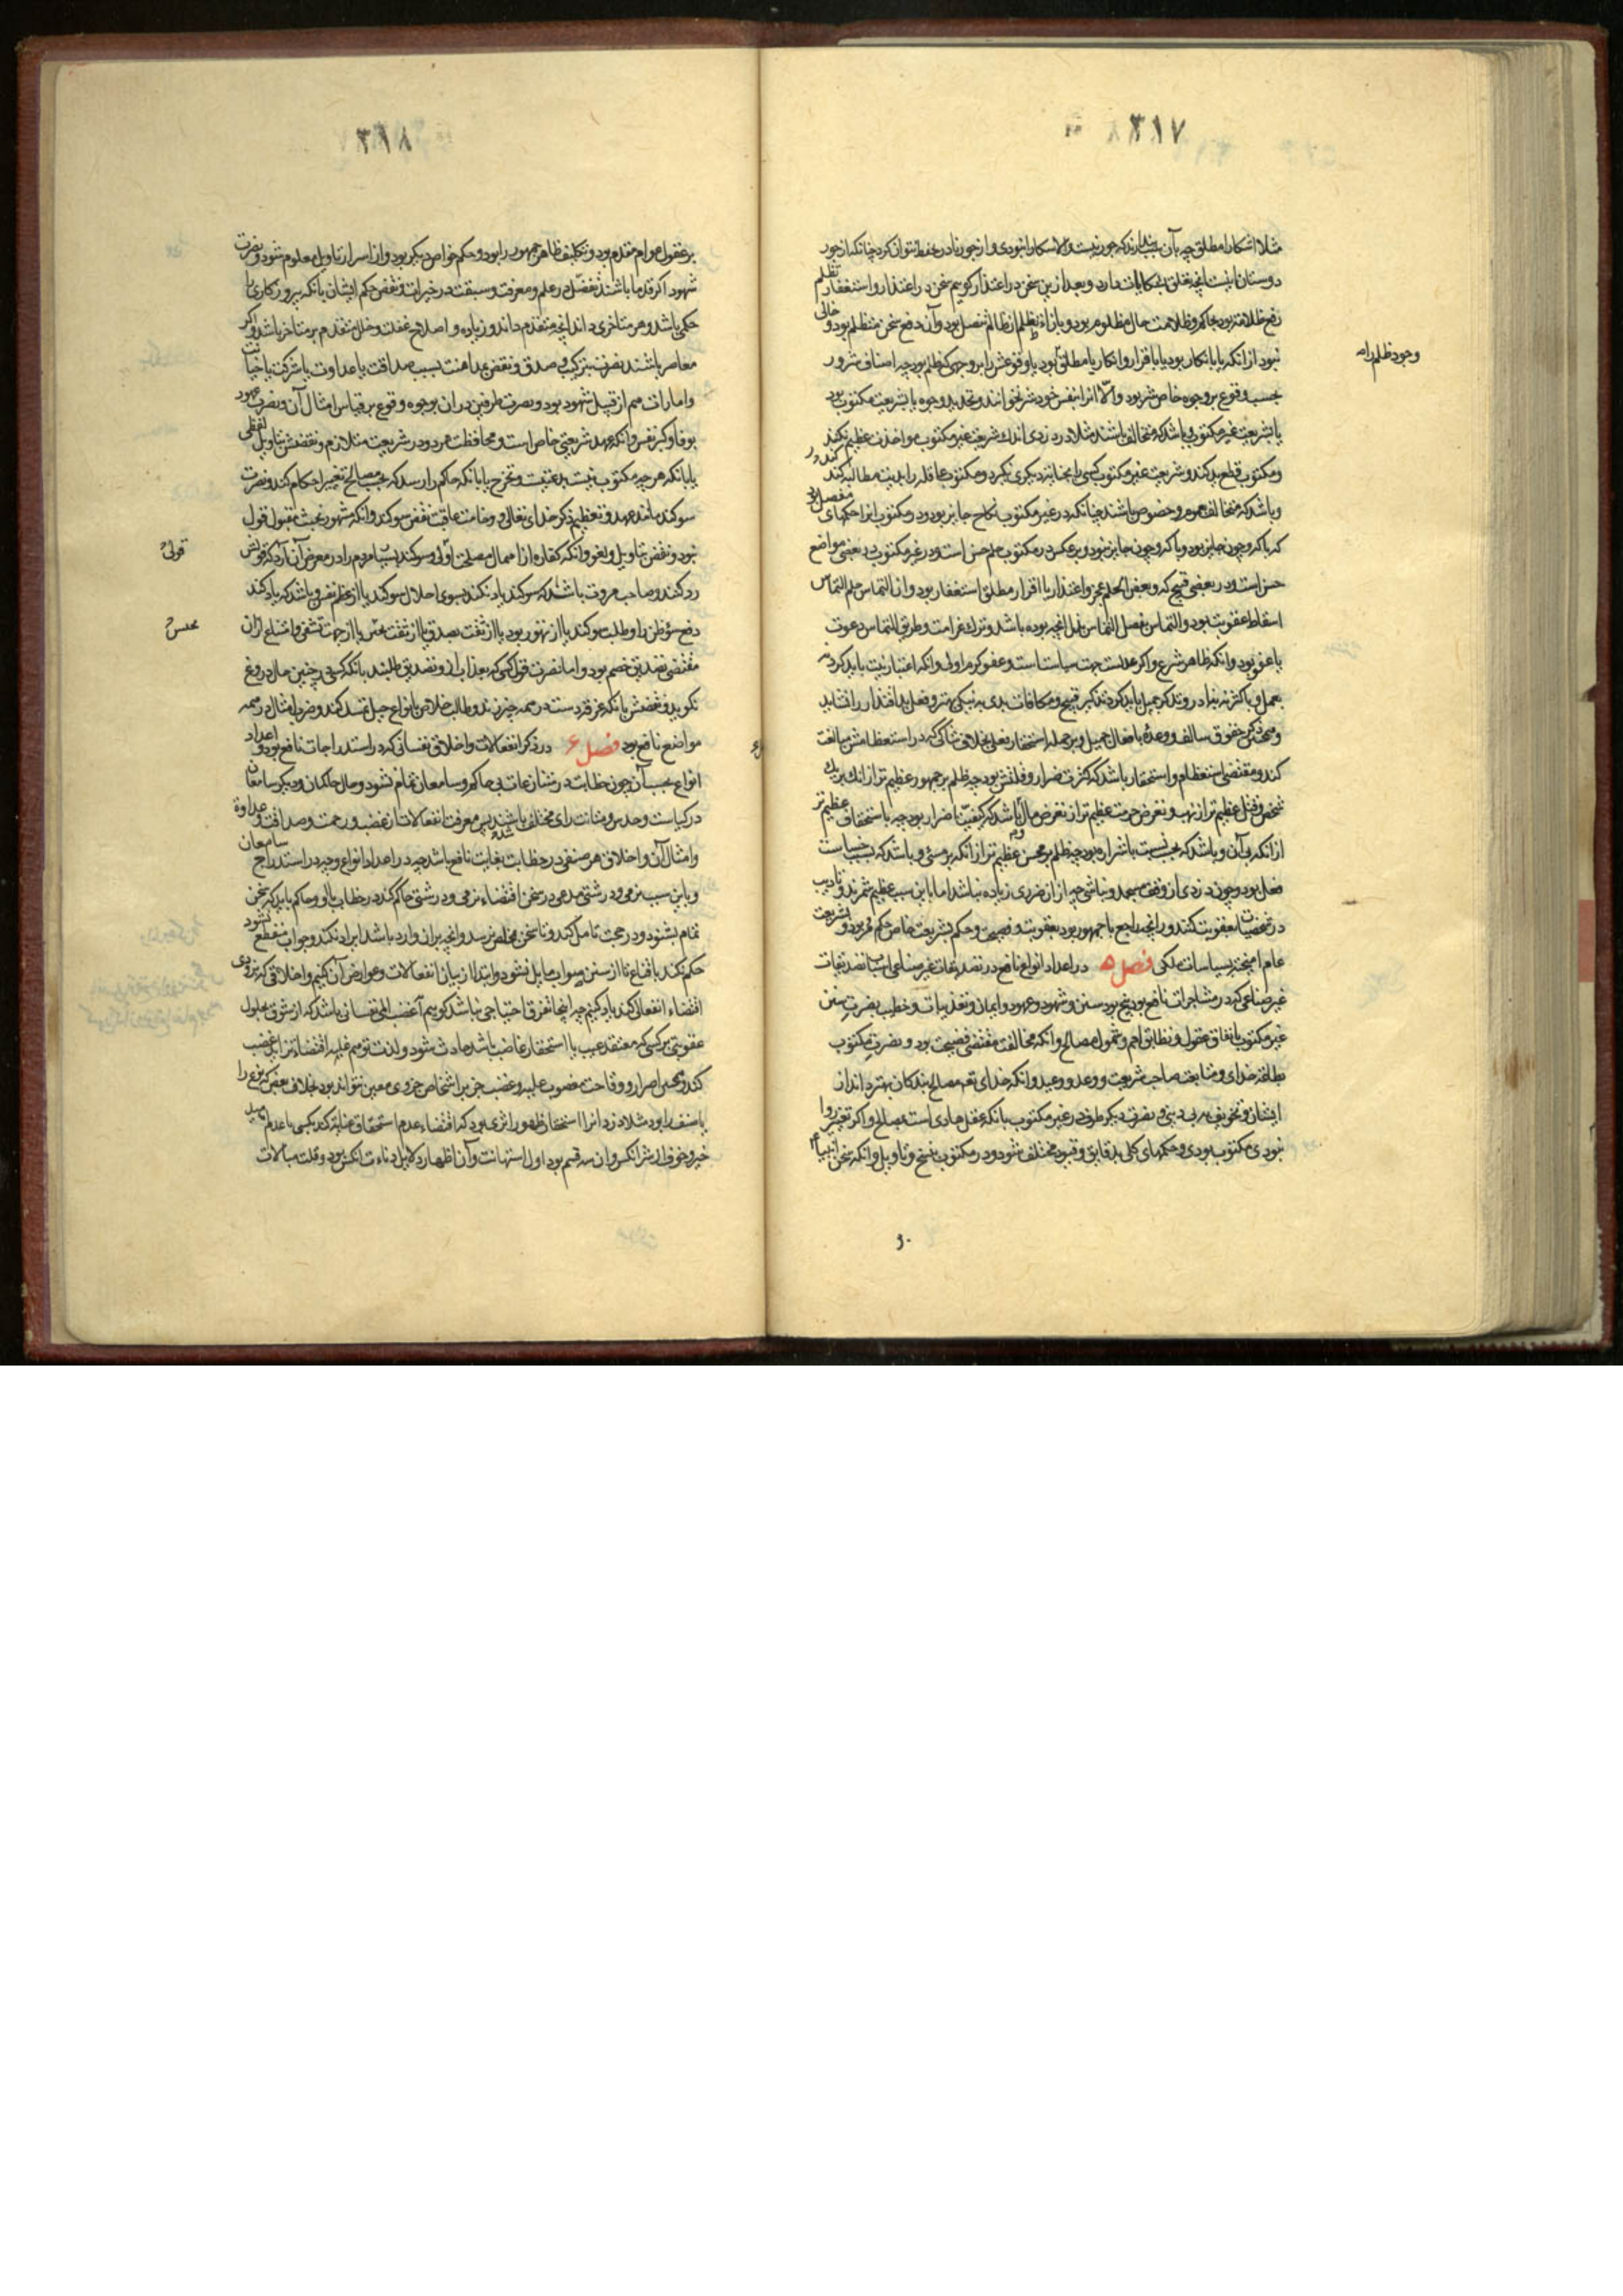 ٣١٧
مثلا اشکارا مطلق چه بآن پندارند که جور نیست والا اشکارا نبودی و از جور نادر تحفظ نتوان کرد چنانکه از جور
دوستان اینست انچه تعلق بشکایات دارد و بعد ازین سخن در اعتذار کوییم سخن در اعتذار و استغفار تظلم
رفع ظلامتی بود بحاکم و ظلامت حال مظلوم بود و بازاء تظلم از ظالم تنصل بود و آن دفع سخن متظلم بود و خالی
نبود از انکه یا بانکار بود یا باقرار و انکار یا مطلق بود یا وقوعش را بر وجهی که ظلم بود چه اصناف شرور
وجود ظلم را
بحسب وقوع بر وجوه خاص شر بود والا انرا بنفس خود شر نخوانند و تحدید وجوه یا بشریعت مکتوب بود
یا بشریعت غیر مکتوب و باشد که متخالف باشند مثلا در دزدی اندک شریعت غیر مکتوب مواخذت عظیم نکند
و مکتوب قطع ید کند و شریعت غیر مکتوب کسی را بجنایت دیکری نکیرد و مکتوب عاقله را بدیت مطالبه کند
و باشد که متخالف عموم و خصوص باشند چنانکه در غیر مکتوب نکاح جایز بود و در مکتوب انرا حکمهای مفصل بود
که با که و چون جایز بود و با که و چون جایز نبود و بر عکس در مکتوب حلم حسن است و در غیر مکتوب در بعضی مواضع
حسن است و در بعضی قبیح که و بعض الحلم عجز و اعتذار با اقرار مطلق استغفار بود و آن التماس حلم التماس
اسقاط عقوبت بود و التماس تفضل التماس بذل انچه بوده باشد و ترک غرامت و طریق التماس دعوت
با عفو بود و انکه ظاهر شرع و اکر عدلست جهت سیاست است و عفو کرم اولی و انکه اعتبار نیت باید کرد نه
بعمل و باکثر نه بنادر و تذکر جمیل باید کرد نه تذکر قبیح و مکافات بدی به نیکی بهتر و فعل بد اقتدار را نشاید
کند و مقتضی استعظام و استحقار باشد که کثرت ضرار و قلتش بود چه ظلم بر جمهور عظیم تر از انک بر یک
شخص و قتل عظیم تر از نهب و تعرض حرمت عظیم تر از تعرض مال باشد که کیفیت اضرار بود چه با ستخفاف عظیم تر
از انکه بی آن و باشد که بحسب نسبت با شرار بود چه ظلم بر محسن عظیم تر از انکه بر مسئی و باشد که بسبب خساست
فعل بود چون دزدی از وقف مسجد و نباشی چه از از ضرری زیاده نباشد اما باین سبب عظیم شمرند و تادیب
عام امیخته بسیاسات ملکی فصل ۵ در اعداد انواع نافع در تصدیقات غیر صناعی اسباب تصدیقات
غیر صناعی که در مشاجرات نافع بود پنج بود سنن و شهود و عهود و ایمان و تعذیبات و خطیب بنصرت سنن
غیر مکتوب باتفاق عقول و تطابق امم و شمول مصالح و انکه مخالفت مقتضی فضیحت بود و بنصرت مکتوب
بطاعت خدای و متابعت صاحب شریعت و وعد و وعید و انکه خدای تع مصالح بندکان بهتر داند از
ایشان و تخویف به بی دینی و بنصرت دیکر طرف در غیر مکتوب بانکه عقل هادی است بمصالح و اکر تغییر روا
نبودی مکتوب بودی و حکمهای کلی بدقایق و قیود مختلف شود و در مکتوب بنسخ و تاویل و انکه سخن انبیا
٣١٨
بر عقول عوام مقدم بود و تکلیف ظاهر جمهور را بود و حکم خواص دیکر بود و از اسرار تاویل معلوم شود و بنصرت
شهود اکر قدما باشند بفضل در علم و معرفت و سبقت در خیرات و نقض حکم ایشان بانکه بهر روزکاری را
حکمی باشد و هر متاخری داند انچه متقدم داند و زیاده و اصلاح غفلت و خلل متقدم بر متاخر باشد و اکر
معاصر باشند بنصرت بتزکیت و صدق و نقض بمداهنت بسبب صداقت یا عداوت یا شرکت یا خیانت
و امارات هم از قبیل شهود بود و بنصرت طرفین در ان بوجوه وقوع بر قیاس امثال آن و بنصرت عهود
بوفا و کرم نفس و انکه عهد شریعتی خاص است و محافظت هر دو در شریعت متلازم و نقضش بتاویل لفظی
یا بانکه هر چه مکتوب نیست بدعتیست و تخرج یا بانکه حاکم را رسد که بحسب مصالح تغییر احکام کند و نصرت
سوکند مانند عهد و تعظیم ذکر خدای تعالی و وخامت عاقبت نقض سوکند و انکه شهود بخبث مقبول قول
نبود و نقض بتاویل و لغو و انکه کفاره از اهمال مصلحت اولی و سوکند بسیار مردم را در معرض آن آرد که قولش
قولی
رد کنند و صاحب مروت باشد که سوکند یاد نکند بسوی اجلال سوکند یا از عظم نفس و باشد که یاد کند
دفع سوء ظن را و طلب سوکند یا از تهور بود یا از ثقت بصدق یا از ثقت بحنث یا از جهت تشفی و امتناع ازان
مقتضی تصدیق خصم بود و اما نصرت قول کسی که بعذاب ازو تصدیق طلبند بانکه کسی در چنین حال دروغ
نکوید و نقضش بانکه غرقه دست در همه چیز زند و طالب خلاص بانواع حیل تمسک کند و ضرب امثال در همه
مواضع نافع بود فصل ۶ در ذکر انفعالات و اخلاق نفسانی که در استدراجات نافع بود و اعداد
انواع بحسب آن چون خطابت در منازعات بی حاکم و سامعان تمام نشود و حال حاکمان و دیکر سامعان
در کیاست و حدس و متانت رای مختلف باشند پس معرفت انفعالات از غضب و رحمت و صداقت و عداوة
و امثال آن و اخلاق هر صنفی در خطابت بغایت نافع باشد چه در اعداد انواع و چه در استدراج سامعان
و باین سبب نرمی و درشتی مدعی در سخن اقتضاء نرمی و درشتی حاکم کند در خطاب با او و حاکم باید که سخن
تمام بشنود و در حجت تامل کند و تا سخن بمخلص نرسد و انچه بر ان وارد باشد ایراد نکند و جواب منقطع نشود
حکم نکند باقناع تا از سنن صواب مایل نشود و ابتدا از بیان انفعالات و عوارض آن کنیم و اخلاقی که هر یک
اقتضاء انفعالی کند یاد کنیم چه اینجا بفرق احتیاجی نباشد کوییم آ غضب المی نفسانی باشد که از شوق بحلول
عقوبتی بر کسی که معتقد عیب یا استحقار غاضب باشد حادث شود و لذت توهم غلبه اقتضاء تزاید غضب
خیر و خوف از شر انکس و ان سه قسم بود اول استهانت و آن اظهار دلایل دناءت انکس بود و قلت مبالات